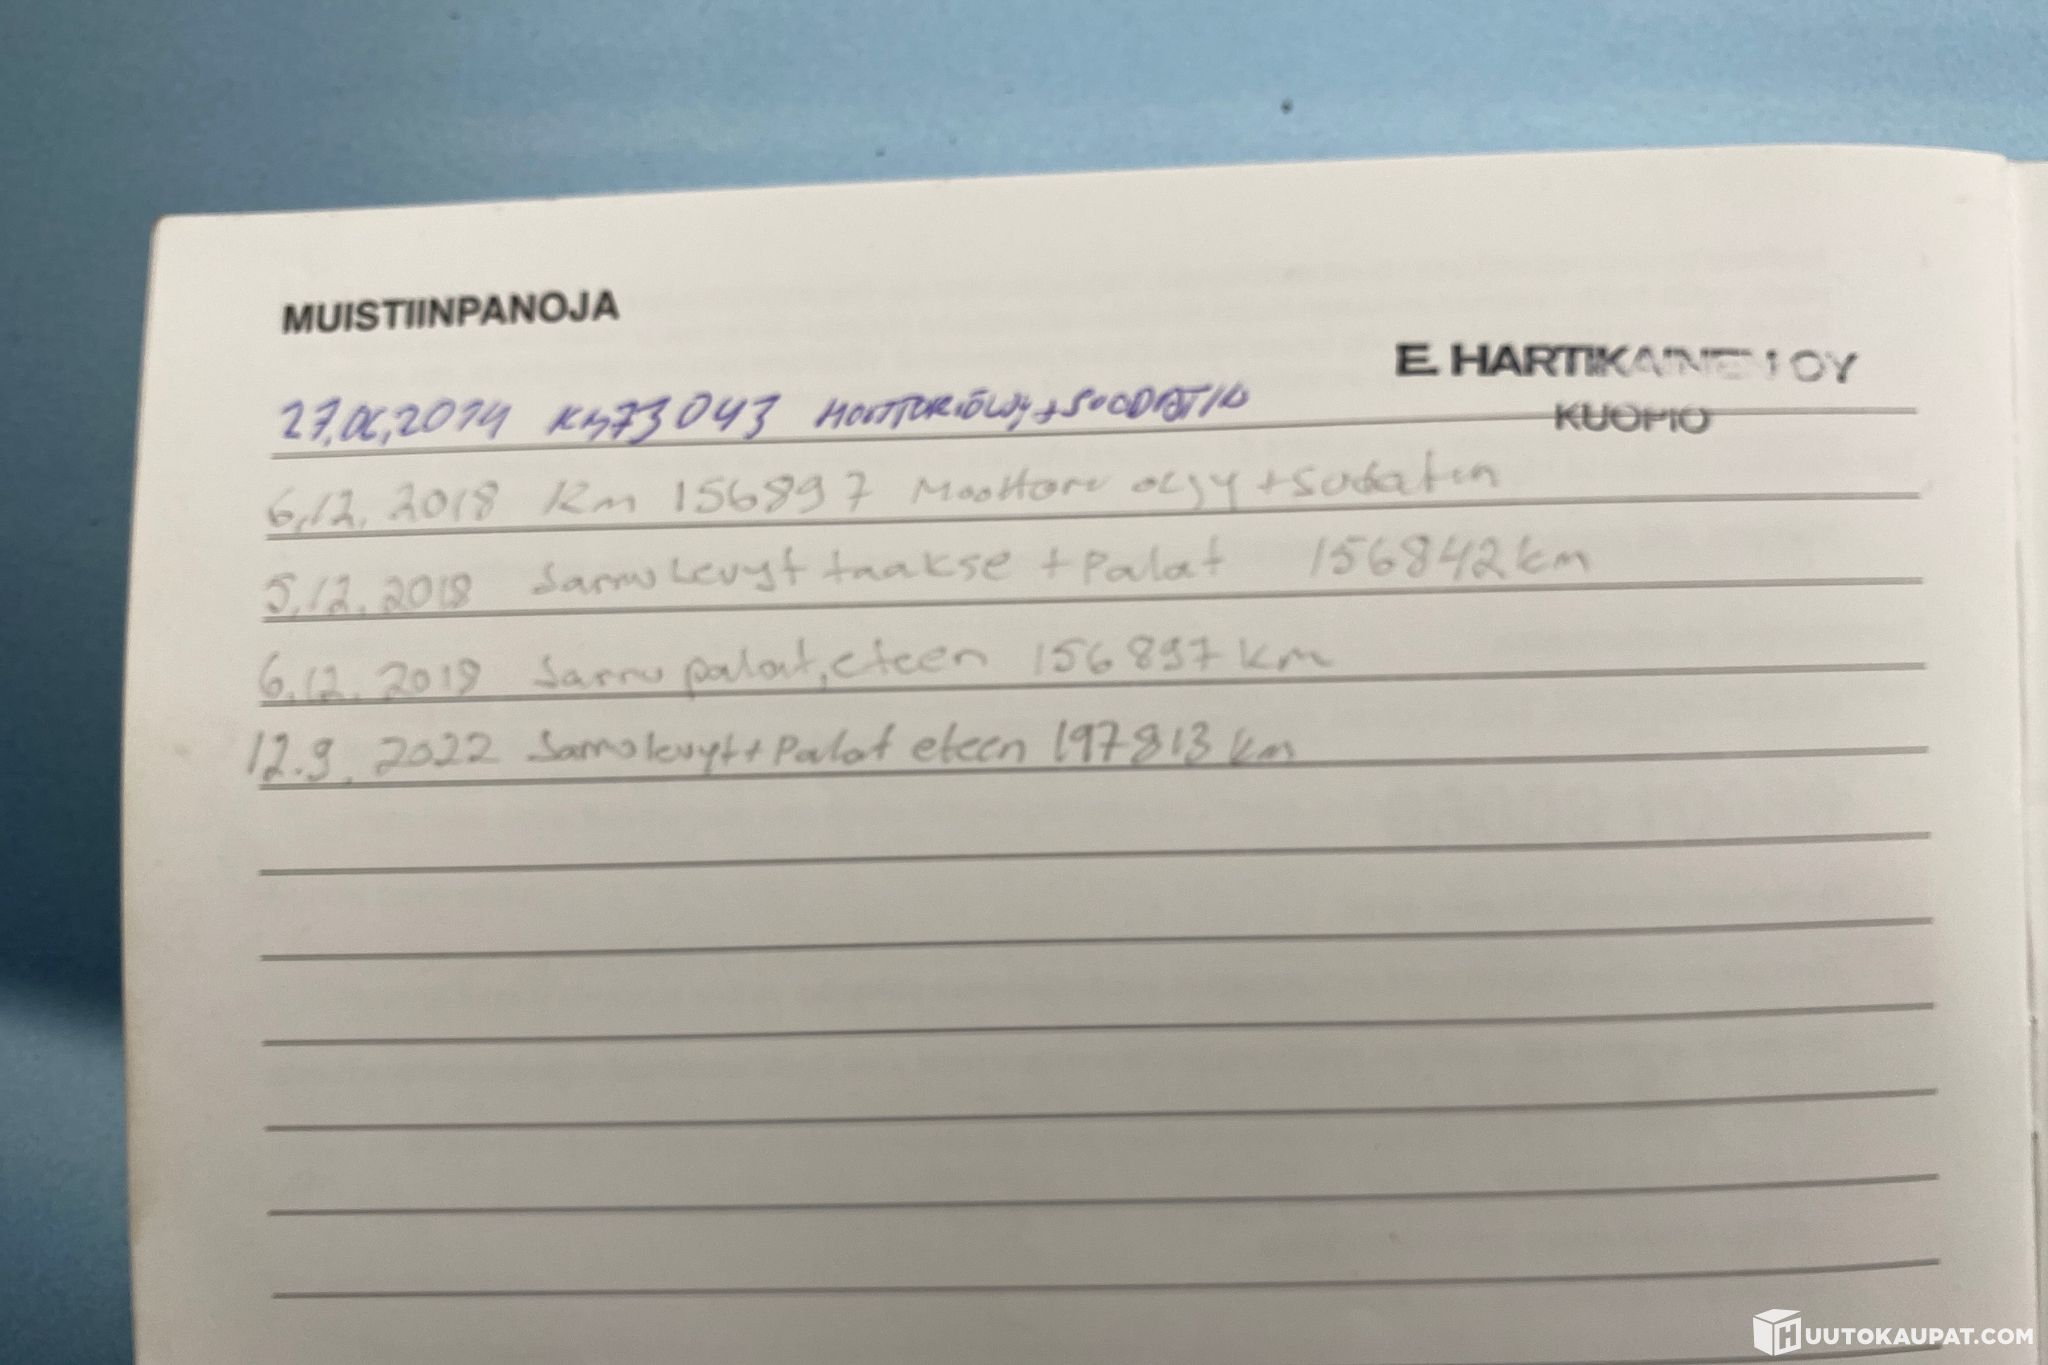 MUISTIINPANOJA
E. HARTIKAINEN OY
KUOPIO
27.06.2014 Km73043 MOOTTORIÖLJY+SUODATIN
6.12.2018 Km 156897 Moottori oljy+Sudatin
5.12.2018 Jarru Levyt taakse + Palat 156842 km
6.12.2018 Jarru palat, eteen 156897 km
12.9.2022 Jarrulevyt+Palat eteen 197813 km
HUUTOKAUPAT.COM